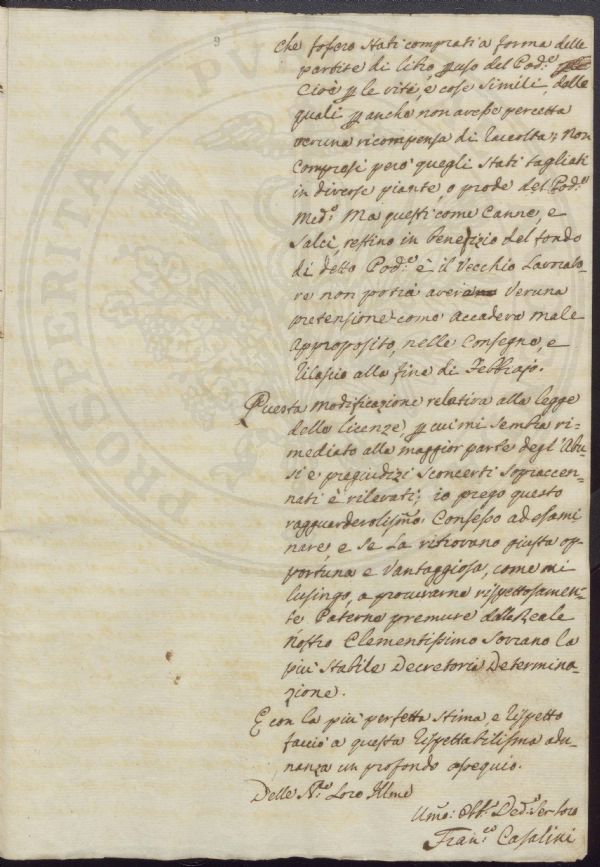 9
che fossero stati comprati a forma delle
partite di libro p uso del Pod.e
cioè p le vite, e cose simili, dalle
quali p anche non avesse percetta
veruna ricompensa di raccolta; Non
compresi però quegli stati tagliati
in diverse piante, o prode del Pod.e
Med.o Ma questi come Canne, e
Salci restino in benefizio del fondo
di detto Pod.e è il Vecchio Lavorato-
re non potrà aver Veruna
pretensione come accadeva male
approposito, nelle Consegne, e
rilascio alla fine di Febbrajo.
Questa modificazione relativa alla legge
delle licenze, p cui mi sembra ri=
mediato alla maggior parte degl'Abu-
si e pregiudizi sconcerti sopraccen-
nati è rilevati; io prego questo
ragguardevolissmo Consesso ad esami
nare, e se la ritrovano giusta op
portuna e Vantaggiosa, come mi
lusingo, a procurarne rispettosamen-
te Paterne premure dalle Reale
nostro Clementissimo Sovrano la
più stabile Decretoria Determina-
zione.
E con la più perfetta stima, e rispetto
faccio a questa rispettabilissma adu-
nanza un profondo ossequio.
Delle N.e Loro Illme
Umo: Obb.o Ded.o Ser.tore
Fran.co Casalini
PROSPERITATI PVB